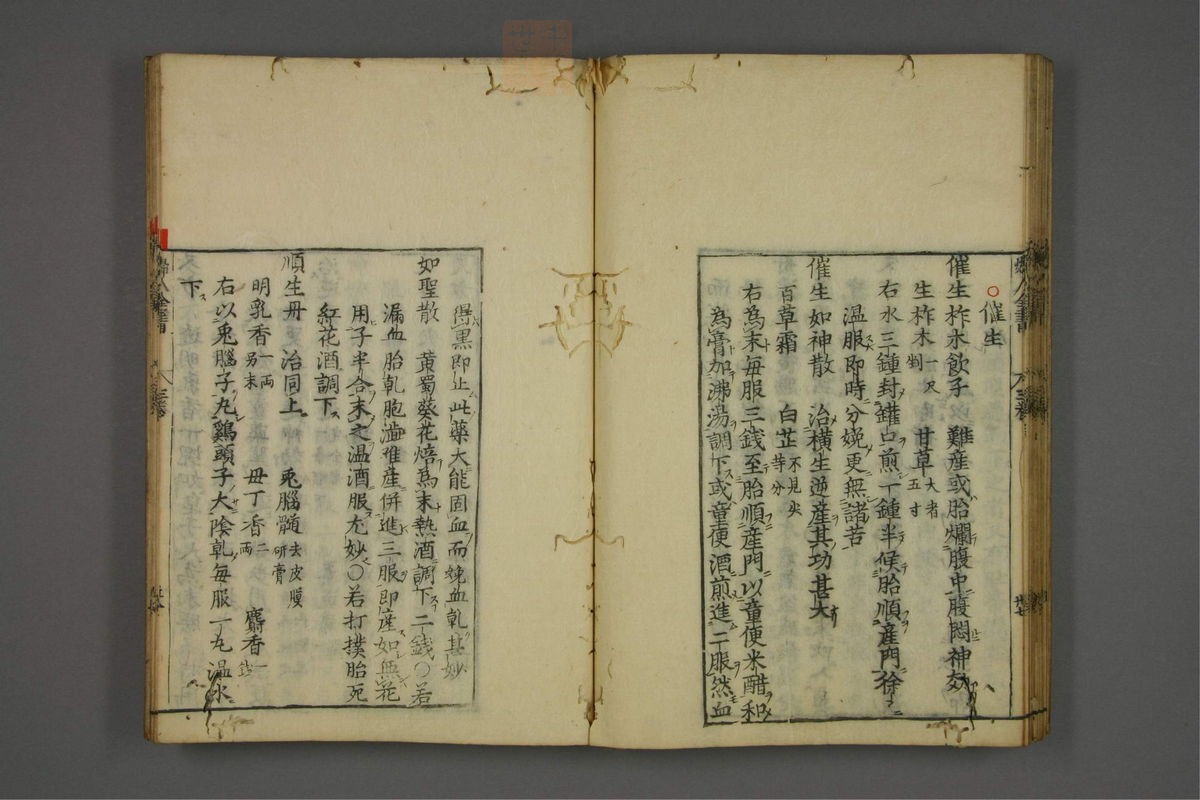 ○催生
催生柞木飲子 難産或胎爛腹中腹悶神效
生柞木一尺剉 甘草大者五寸
右水三鍾封鑵口煎一鍾半候胎順產門徐
溫服即時分娩更無諸苦
催生如神散 治橫生逆產其功甚大
百草霜 白芷不見火等分
右為末每服三錢至胎順產門以童便米醋和
為膏加沸湯調下或童便酒煎進二服然血
得黑即止此藥大能固血而娩血乾甚妙
如聖散 黃蜀葵花焙為末熱酒調下二錢○若
漏血胎乾胞澁難產併進三服即產如無花
用子半合末之溫酒服尤妙○若打撲胎死
紅花酒調下
順生丹 治同上 兎腦髓去皮膜研膏
明乳香一両另末 母丁香二両 麝香一錢
右以兎腦子丸鷄頭子大陰乾每服一丸溫水
下